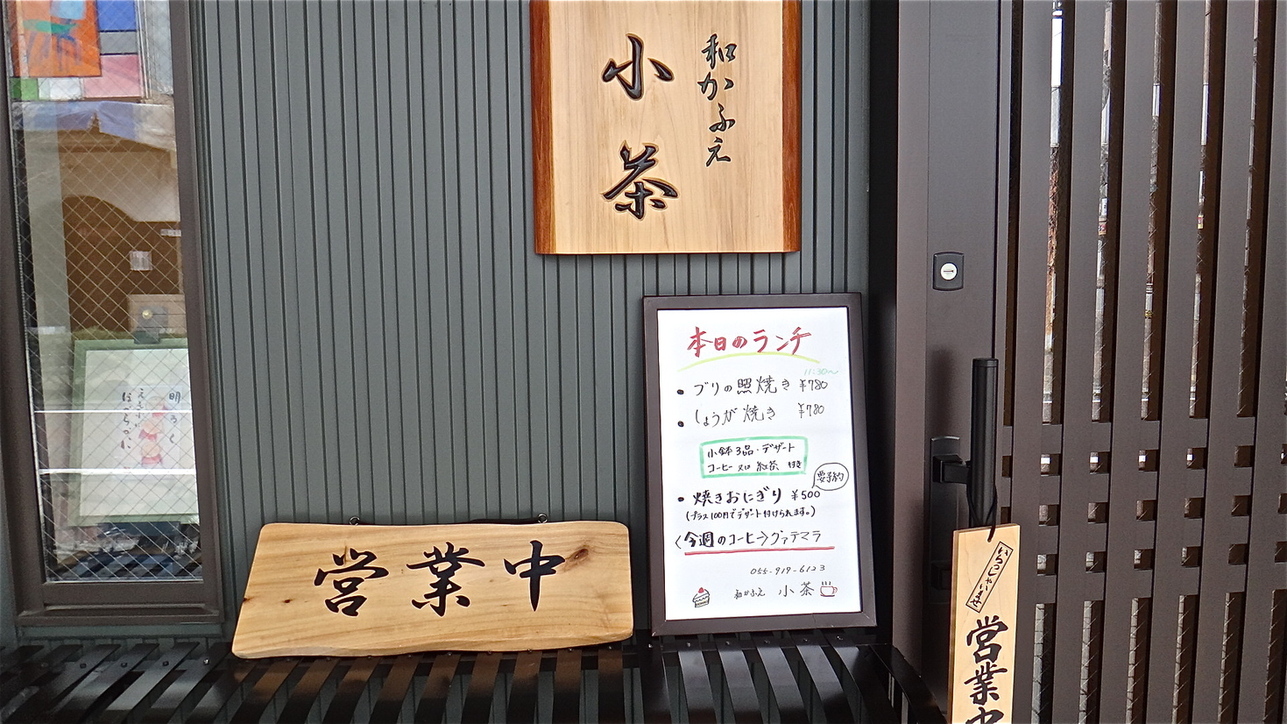 和かふえ
小茶
本日のランチ
11:30～
・ブリの照焼き ¥780
・しょうが焼き ¥780
小鉢3品・デザート
コーヒー又は紅茶 付き
要予約
・焼きおにぎり ¥500
(プラス100円でデザート付けられます。)
〈今週のコーヒー〉グァテマラ
055-919-6123
和かふえ 小茶
営業中
いらっしゃいませ
営業中
明るく
えきすが